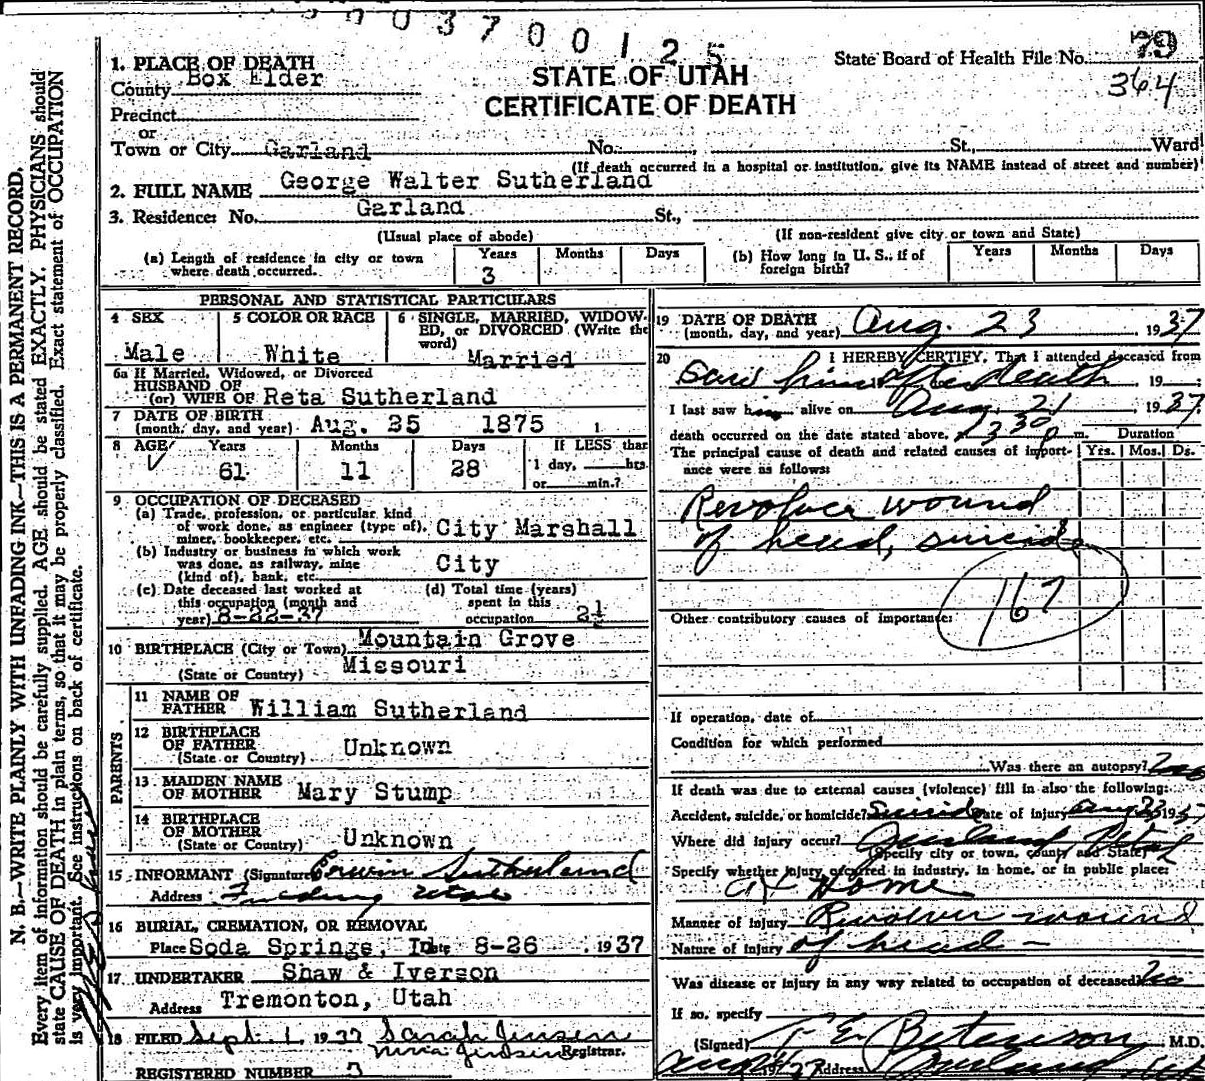 003700125
1. PLACE OF DEATH
County Box Elder
STATE OF UTAH
CERTIFICATE OF DEATH
State Board of Health File No. 79
364
Precinct
or
Town or City Garland No. St., Ward
(If death occurred in a hospital or institution, give its NAME instead of street and number)
2. FULL NAME George Walter Sutherland
3. Residence: No. Garland St.,
(Usual place of abode) (If non-resident give city or town and State)
(a) Length of residence in city or town where death occurred. Years 3 Months Days
(b) How long in U. S., if of foreign birth? Years Months Days
PERSONAL AND STATISTICAL PARTICULARS
4 SEX Male
5 COLOR OR RACE White
6 SINGLE, MARRIED, WIDOWED, or DIVORCED (Write the word) Married
6a If Married, Widowed, or Divorced
HUSBAND OF
(or) WIFE OF Reta Sutherland
7 DATE OF BIRTH
(month, day, and year) Aug. 25 1875
8 AGE Years 61 Months 11 Days 28
If LESS than 1 day, hrs. or min.?
9 OCCUPATION OF DECEASED
(a) Trade, profession, or particular kind of work done, as engineer (type of), miner, bookkeeper, etc. City Marshall
(b) Industry or business in which work was done, as railway, mine (kind of), bank, etc. City
(c) Date deceased last worked at this occupation (month and year) 8-22-37
(d) Total time (years) spent in this occupation 2½
10 BIRTHPLACE (City or Town) Mountain Grove
(State or Country) Missouri
PARENTS
11 NAME OF FATHER William Sutherland
12 BIRTHPLACE OF FATHER
(State or Country) Unknown
13 MAIDEN NAME OF MOTHER Mary Stump
14 BIRTHPLACE OF MOTHER
(State or Country) Unknown
15 INFORMANT (Signature) Erwin Sutherland
Address
16 BURIAL, CREMATION, OR REMOVAL
Place Soda Springs, Id Date 8-26 1937
17 UNDERTAKER Shaw & Iverson
Address Tremonton, Utah
18 FILED Sept. 1 1937 Sarah Jensen
Nina Jensen Registrar.
REGISTERED NUMBER
19 DATE OF DEATH
(month, day, and year) Aug. 23, 1937
20 I HEREBY CERTIFY, That I attended deceased from
Saw him after death, 19
I last saw him alive on Aug. 21, 1937
death occurred on the date stated above, m. Duration
The principal cause of death and related causes of importance were as follows: Yrs. Mos. Ds.
Revolver wound
of head, suicide
167
Other contributory causes of importance:
If operation, date of
Condition for which performed
Was there an autopsy? no
If death was due to external causes (violence) fill in also the following:
Accident, suicide, or homicide? suicide Date of injury Aug 23 193
Where did injury occur? Garland, Utah
(Specify city or town, county and State)
Specify whether injury occurred in industry, in home, or in public place:
at Home
Manner of injury Revolver wound
Nature of injury of head -
Was disease or injury in any way related to occupation of deceased? no
If so, specify
(Signed) Peterson M.D.
Address Garland Utah
N. B.—WRITE PLAINLY WITH UNFADING INK—THIS IS A PERMANENT RECORD.
Every item of information should be carefully supplied. AGE should be stated EXACTLY. PHYSICIANS should
state CAUSE OF DEATH in plain terms, so that it may be properly classified. Exact statement of OCCUPATION
is very important. See instructions on back of certificate.